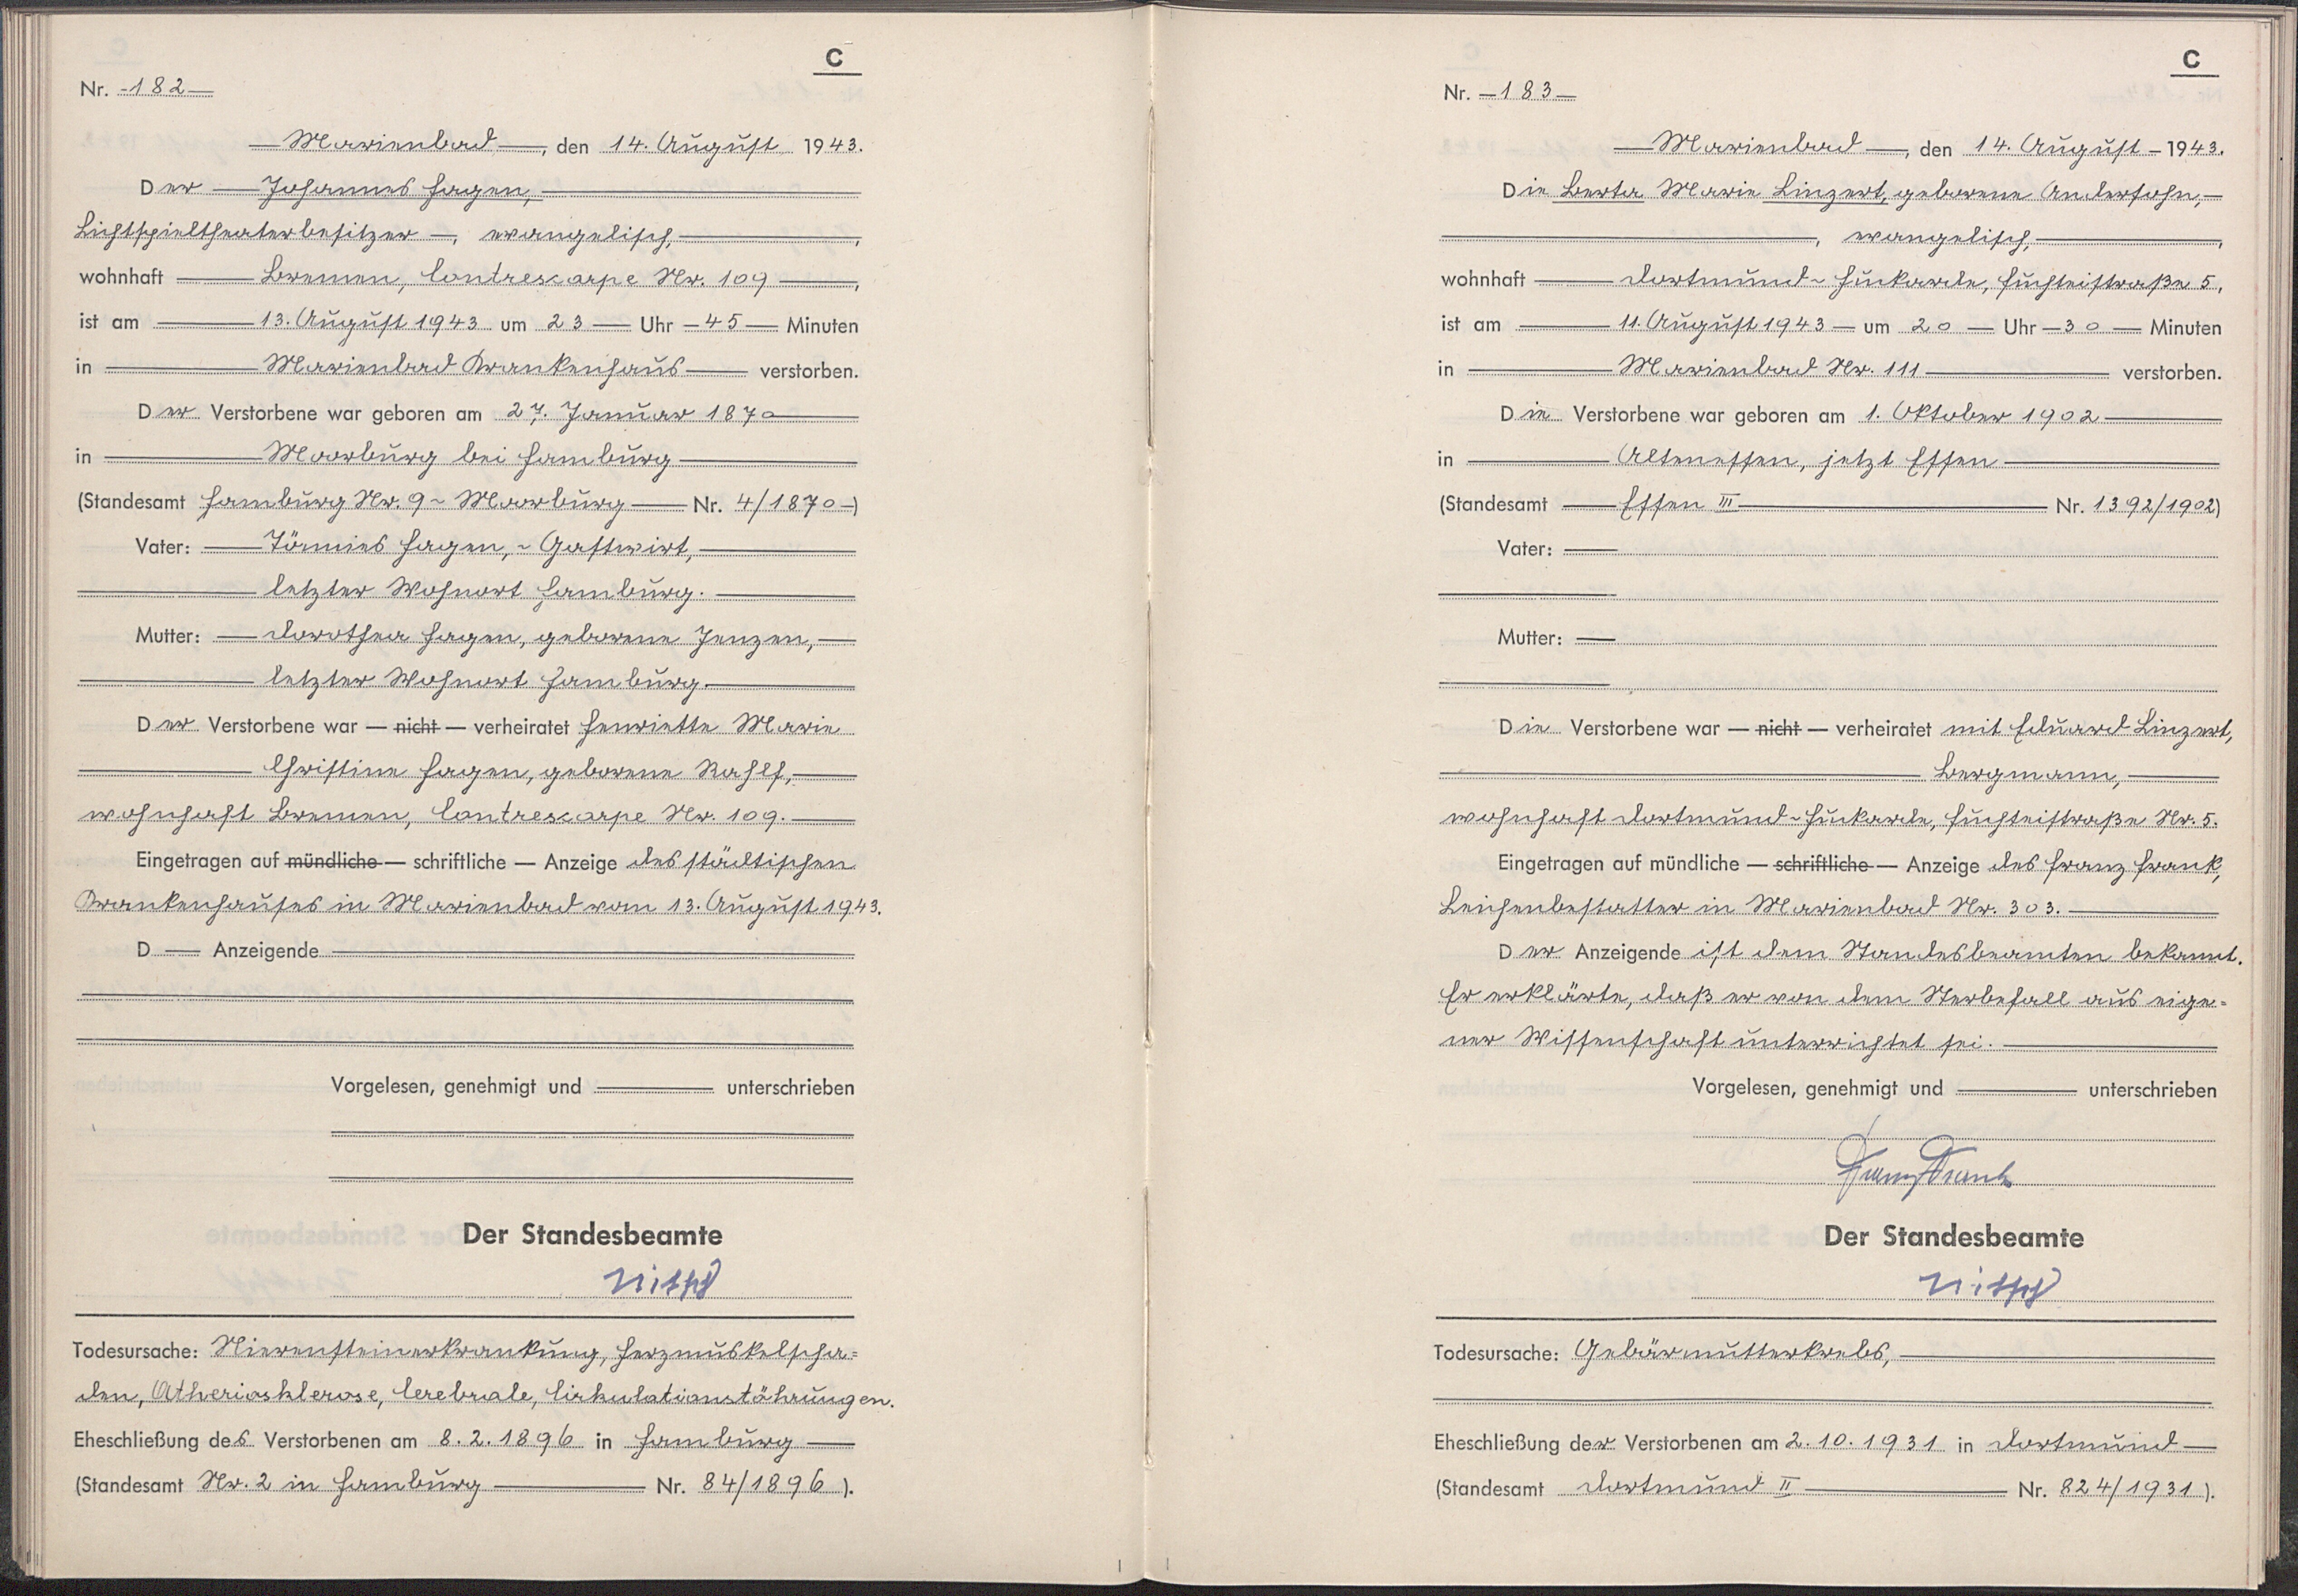 C
Nr. -182-
Marienbad, den 14. August 1943.
Der Johannes Hagen,
Lichtspieltheaterbesitzer -, evangelisch,
wohnhaft Bremen, Contrescarpe Nr. 109,
ist am 13. August 1943 um 23 Uhr 45 Minuten
in Marienbad Krankenhaus verstorben.
Der Verstorbene war geboren am 27. Januar 1870
in Moorburg bei Hamburg
(Standesamt Hamburg Nr. 9 - Moorburg Nr. 4/1870-)
Vater: Tönnies Hagen, - Gastwirt,
letzter Wohnort Hamburg.
Mutter: Dorothea Hagen, geborene Jenzen,
letzter Wohnort Hamburg.
Der Verstorbene war — nicht — verheiratet Henriette Marie
Christine Hagen, geborene Rahlf,
wohnhaft Bremen, Contrescarpe Nr. 109.
Eingetragen auf mündliche — schriftliche — Anzeige des städtischen
Krankenhauses in Marienbad vom 13. August 1943.
D Anzeigende
Vorgelesen, genehmigt und unterschrieben
Der Standesbeamte
Todesursache: Nierensteinerkrankung, Herzmuskelscha=
den, Atheriosklerose, Cerebrale, Cirkulationstöhrungen.
Eheschließung des Verstorbenen am 8.2.1896 in Hamburg
(Standesamt Nr. 2 in Hamburg Nr. 84/1896).
C
Nr. -183-
Marienbad, den 14. August - 1943.
Die Berta Marie Linzert, geborene Andersohn,
, evangelisch,
wohnhaft Dortmund-Huckarde, Huchteistraße 5,
ist am 11. August 1943 um 20 Uhr 30 Minuten
in Marienbad Nr. 111 verstorben.
Die Verstorbene war geboren am 1. Oktober 1902
in Altenessen, jetzt Essen
(Standesamt Essen III Nr. 1392/1902)
Vater:
Mutter:
Die Verstorbene war — nicht — verheiratet mit Eduard Linzert,
Bergmann,
wohnhaft Dortmund-Huckarde, Huchteistraße Nr. 5.
Eingetragen auf mündliche — schriftliche — Anzeige des Franz Frank,
Leichenbestatter in Marienbad Nr. 303.
Der Anzeigende ist dem Standesbeamten bekannt.
Er erklärte, daß er von dem Sterbefall aus eige=
ner Wissenschaft unterrichtet sei.
Vorgelesen, genehmigt und unterschrieben
Franz Frank
Der Standesbeamte
Todesursache: Gebärmutterkrebs,
Eheschließung der Verstorbenen am 2.10.1931 in Dortmund
(Standesamt Dortmund II Nr. 824/1931).